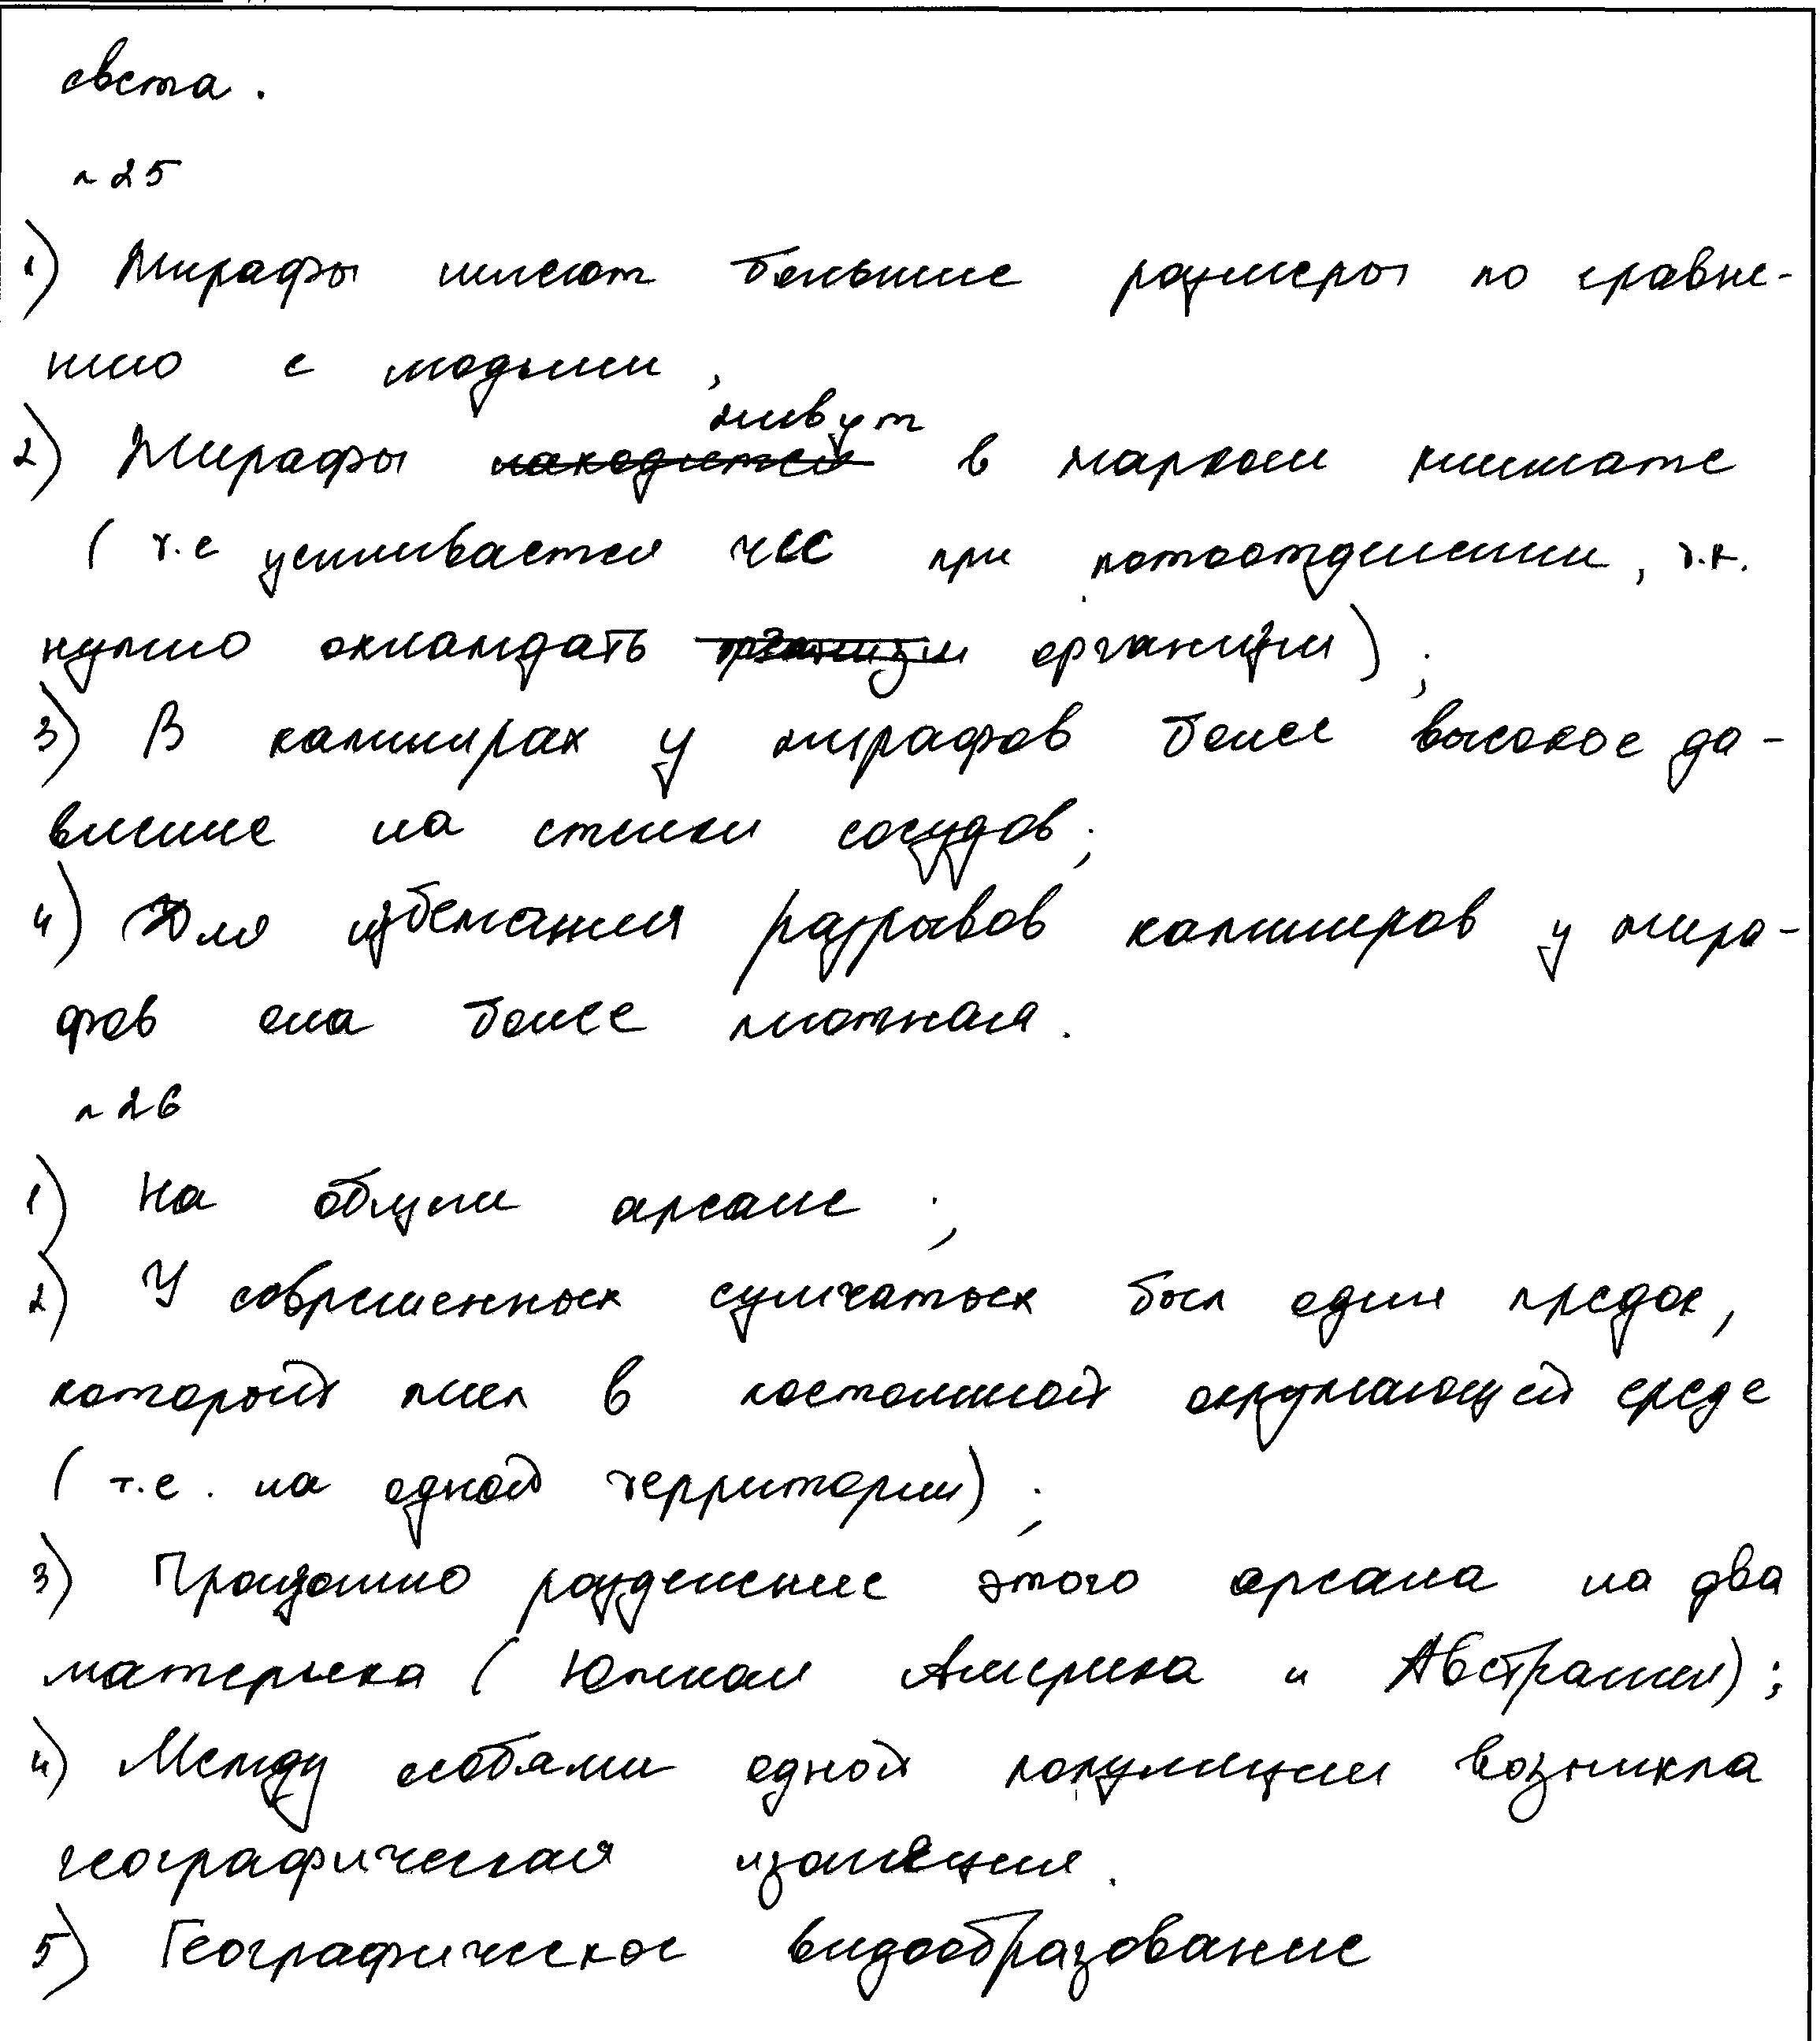 света.
№25
1) Жирафы имеют большие размеры по сравне-
нию с людьми,
живут
2) Жирафы находится в жарком климате
(т.е усиливается ЧСС при потоотделении, т.к.
нужно охлаждать организм организм);
3) В капилярах у жирафов более высокое да-
вление на стенки сосудов;
4) Для избежания разрывов капиляров у жира-
фов она более плотная.
№26
1) На общем ареале;
2) У современных сумчатых был один предок,
который жил в постоянной окружающей среде
(т.е. на одной территории);
3) Произошло разделение этого ареала на два
матерыка (Южная Америка и Австралия);
4) Между особями одной популяции возникла
географическая изоляция.
5) Географическое видообразование